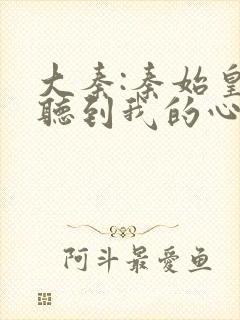 大秦:秦始皇
聽到我的心
阿斗最愛鱼